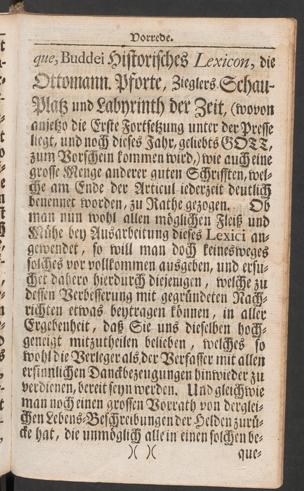 Vorrede.
que, Buddei Historisches Lexicon, die
Ottomann. Pforte, Zieglers Schau-
Platz und Labyrinth der Zeit, (wovon
anjetzo die Erste Fortsetzung unter der Presse
liegt, und noch dieses Jahr, geliebts GOTT,
zum Vorschein kommen wird,) wie auch eine
grosse Menge anderer guten Schrifften, wel-
che am Ende der Articul iederzeit deutlich
benennet worden, zu Rathe gezogen. Ob
man nun wohl allen möglichen Fleiß und
Mühe bey Ausarbeitung dieses Lexici an-
gewendet, so will man doch keinesweges
solches vor vollkommen ausgeben, und ersu-
chet dahero hierdurch diejenigen, welche zu
dessen Verbesserung mit gegründeten Nach-
richten etwas beytragen können, in aller
Ergebenheit, daß Sie uns dieselben hoch-
geneigt mitzutheilen belieben, welches so
wohl die Verleger als der Verfasser mit allen
ersinnlichen Danckbezeugungen hinwieder zu
verdienen, bereit seyn werden. Und gleichwie
man noch einen grossen Vorrath von derglei-
chen Lebens-Beschreibungen der Helden zurü-
cke hat, die unmöglich alle in einen solchen be-
)( )( que-